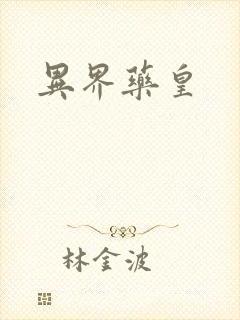 異界藥皇
林金波